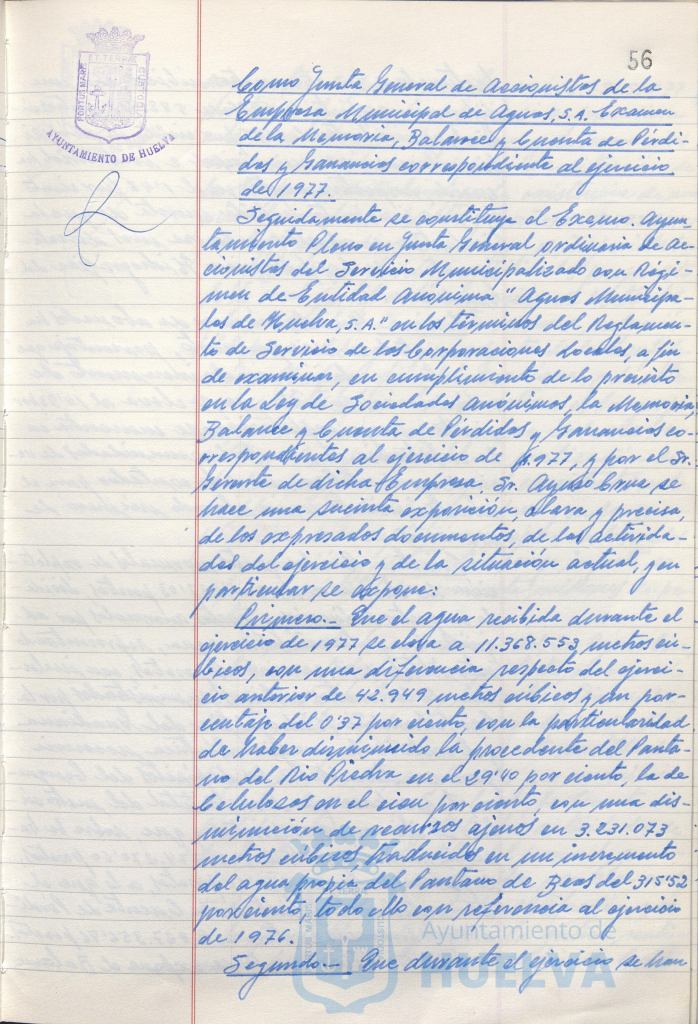 56
PORTUS MARIS ET TERRAE CUSTODIA
AYUNTAMIENTO DE HUELVA
Como Junta General de Accionistas de la
Empresa Municipal de Aguas, S.A. Examen
de la Memoria, Balance y Cuenta de Pérdi-
das y Ganancias correspondiente al ejercicio
de 1977.
Seguidamente se constituye el Excmo. Ayun-
tamiento Pleno en Junta General ordinaria de Ac-
cionistas del Servicio Municipalizado con Régi-
men de Entidad Anónima "Aguas Municipa-
les de Huelva, S.A." en los términos del Reglamen-
to de Servicio de las Corporaciones Locales, a fin
de examinar, en cumplimiento de lo previsto
en la Ley de Sociedades Anónimas, la Memoria
Balance y Cuenta de Pérdidas y Ganancias co-
rrespondientes al ejercicio de 1.977, y por el Sr.
Gerente de dicha Empresa, Sr. se
hace una sucinta exposición, clara y precisa,
de los expresados documentos, de las activida-
des del ejercicio y de la situación actual, y en
particular se expone:
Primero.- Que el agua recibida durante el
ejercicio de 1977 se eleva a 11.368.553 metros cú-
bicos, con una diferencia respecto del ejerci-
cio anterior de 42.949 metros cúbicos y un por-
centaje del 0'37 por ciento, con la particularidad
de haber disminuido la procedente del Panta-
no del Rio Piedra en el 29'40 por ciento, la de
Celulosas en el cien por ciento, con una dis-
minución de recursos ajenos en 3.231.073
metros cúbicos, traducidos en un incremento
del agua propia del Pantano de Beas del 315'52
por ciento, todo ello con referencia al ejercicio
de 1976.
Segundo.- Que durante el ejercicio se han
Ayuntamiento de
HUELVA